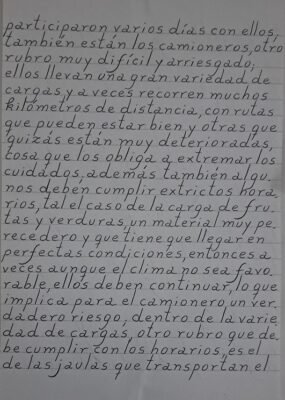 participaron varios días con ellos,
también están los camioneros, otro
rubro muy difícil y arriesgado,
ellos llevan una gran variedad de
cargas, y a veces recorren muchos
kilómetros de distancia, con rutas
que pueden estar bien, y otras que
quizás están muy deterioradas,
cosa que los obliga a extremar los
cuidados, además también algu-
nos deben cumplir extrictos hora-
rios, tal el caso de la carga de fru-
tas y verduras, un material muy pe-
recedero y que tiene que llegar en
perfectas condiciones, entonces a
veces aunque el clima no sea favo-
rable, ellos deben continuar, lo que
implica para el camionero, un ver-
dadero riesgo, dentro de la varie-
dad de cargas, otro rubro que de-
be cumplir con los horarios, es el
de las jaulas que transportan el